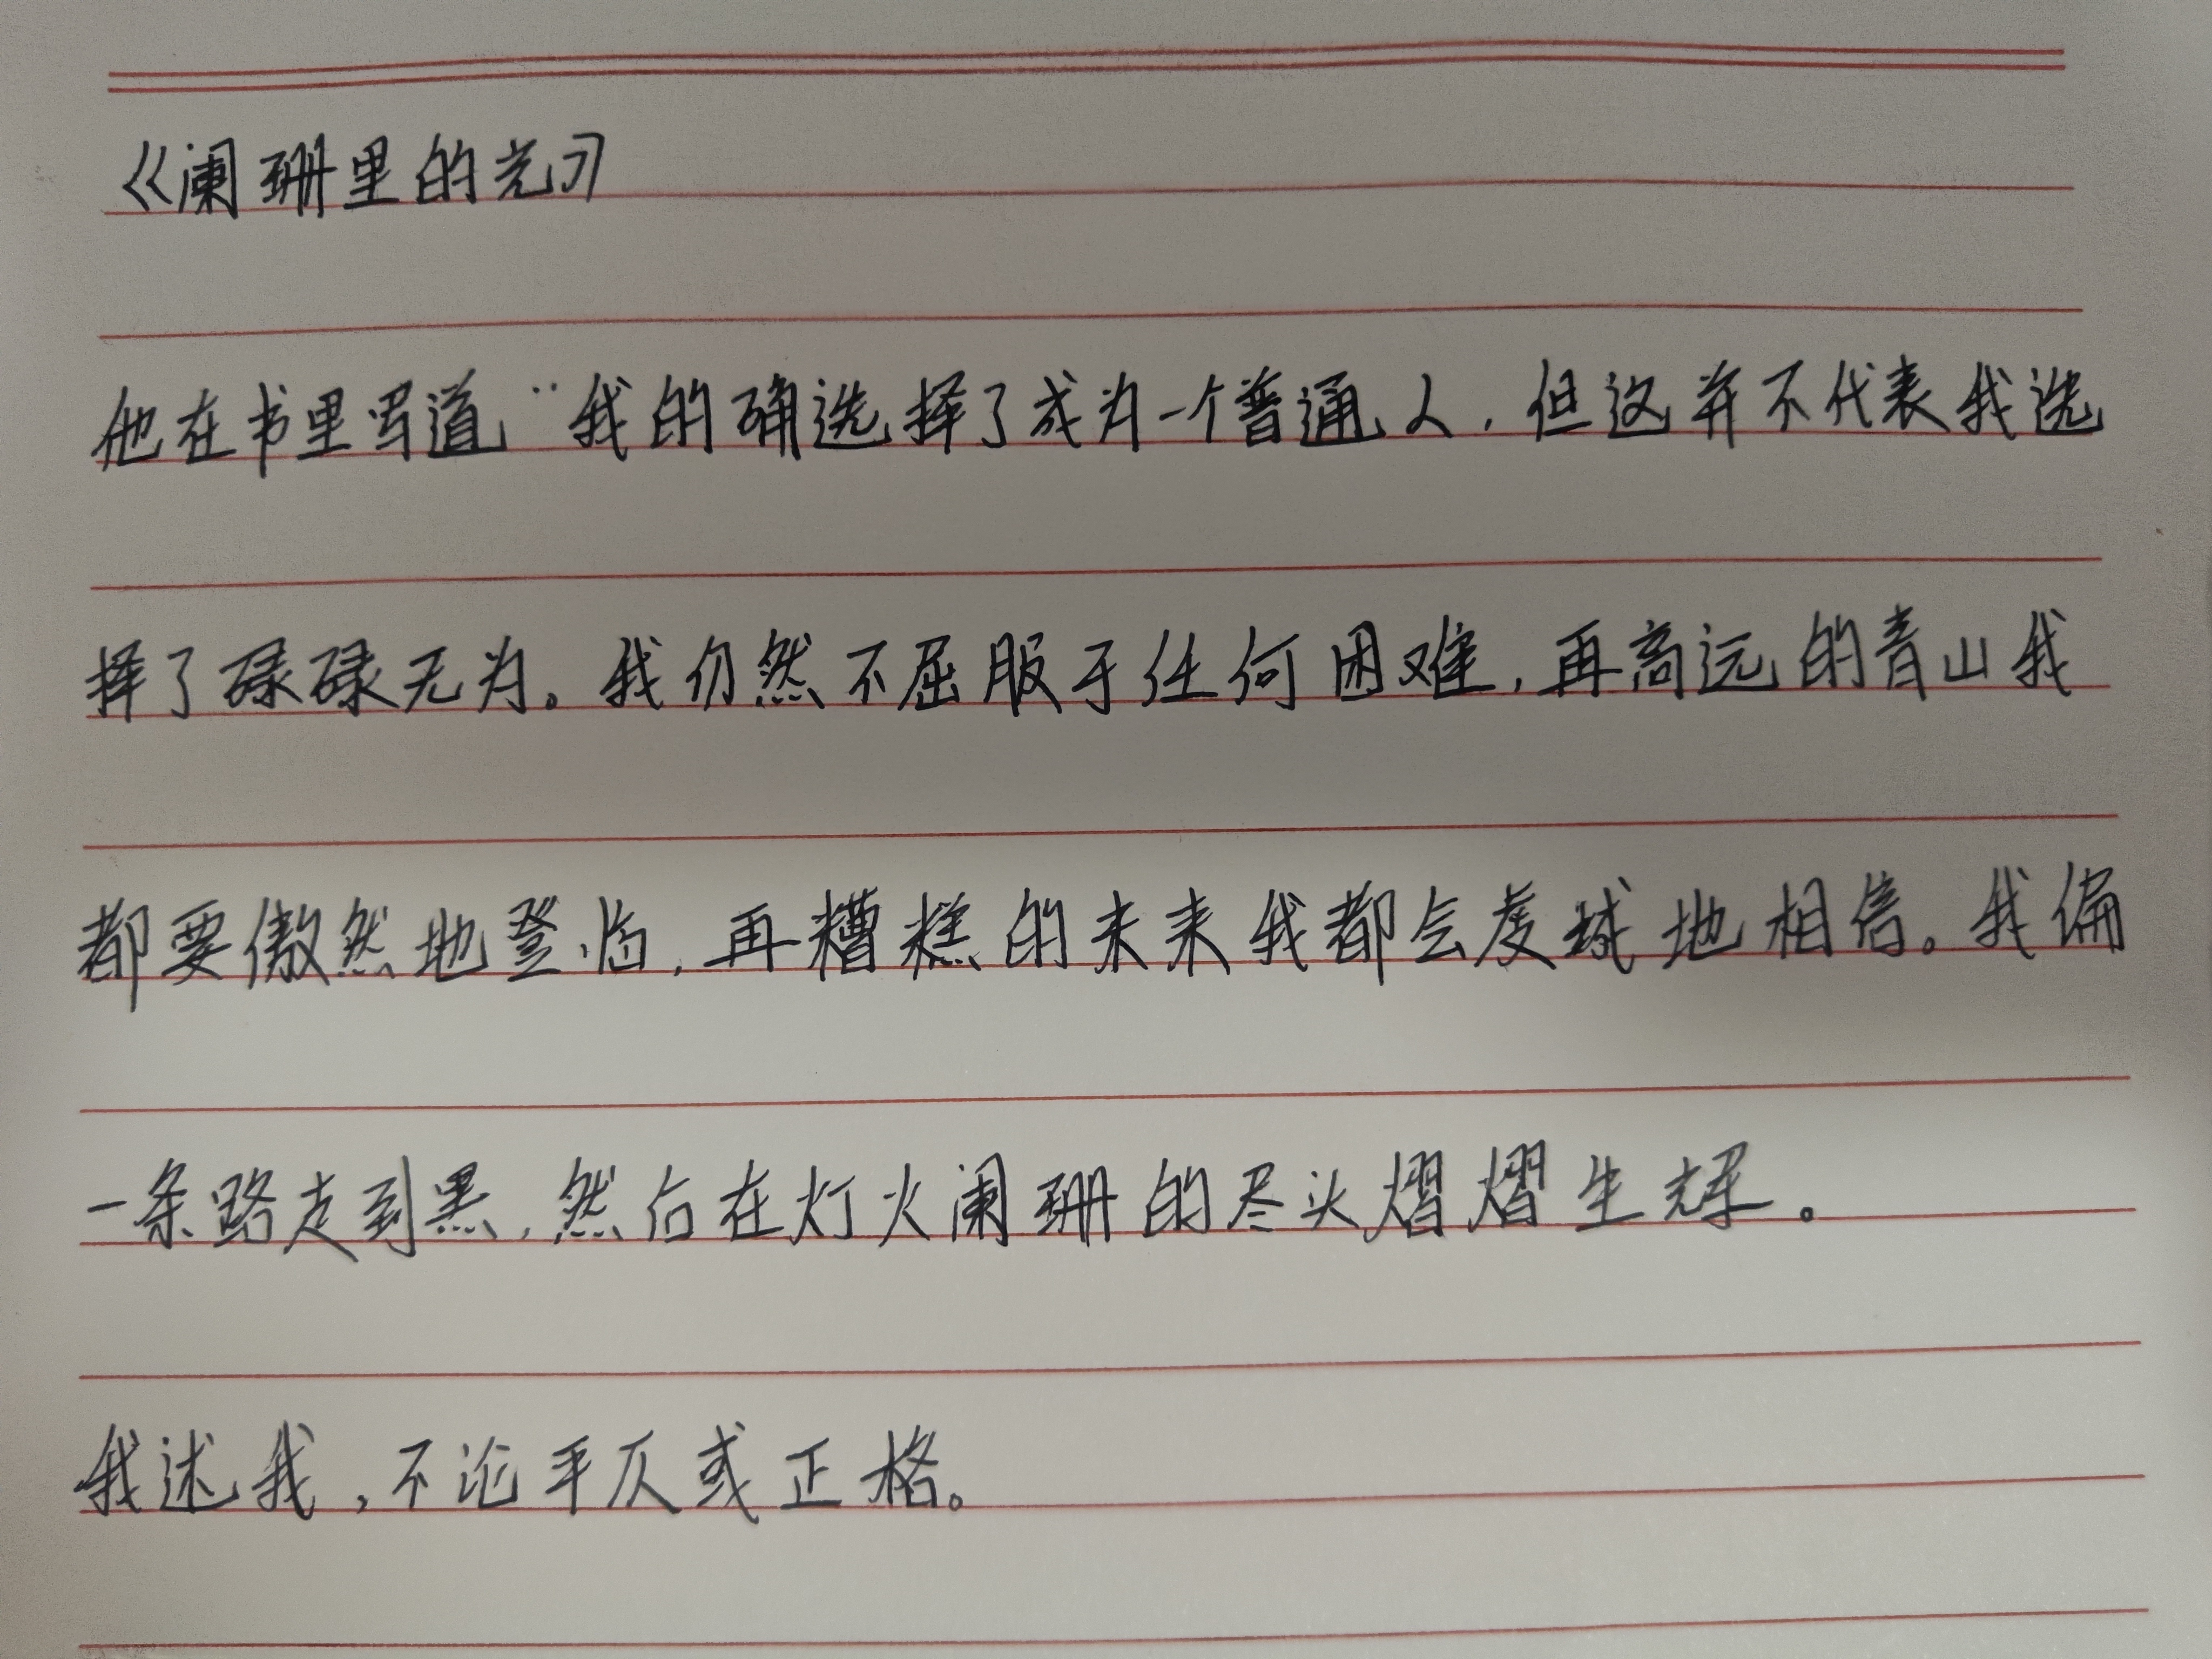 《阑珊里的光》
他在书里写道“我的确选择了成为一个普通人，但这并不代表我选
择了碌碌无为。我仍然不屈服于任何困难，再高远的青山我
都要傲然地登临，再糟糕的未来我都会虔诚地相信。我偏
一条路走到黑，然后在灯火阑珊的尽头熠熠生辉。
我述我，不论平仄或正格。